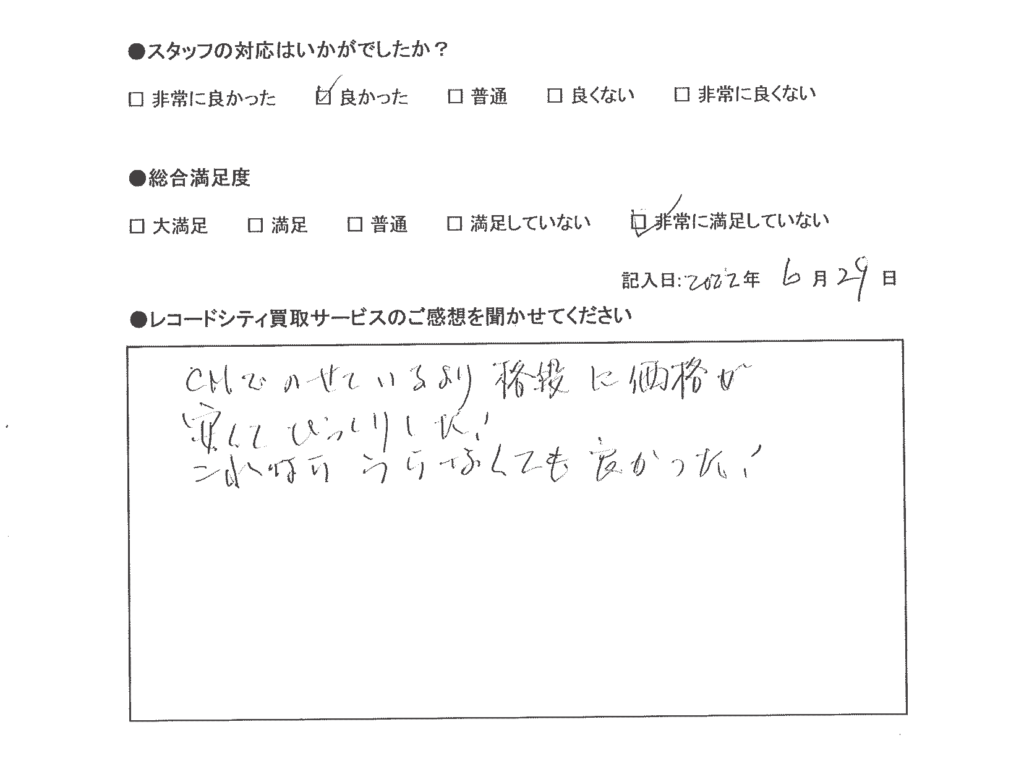 ●スタッフの対応はいかがでしたか？
□ 非常に良かった ☑ 良かった □ 普通 □ 良くない □ 非常に良くない
●総合満足度
□ 大満足 □ 満足 □ 普通 □ 満足していない ☑ 非常に満足していない
記入日:2022年 6月29日
●レコードシティ買取サービスのご感想を聞かせてください
CMでのせているより 格段に価格が
安くてびっくりした!
これなら うらなくても良かった!